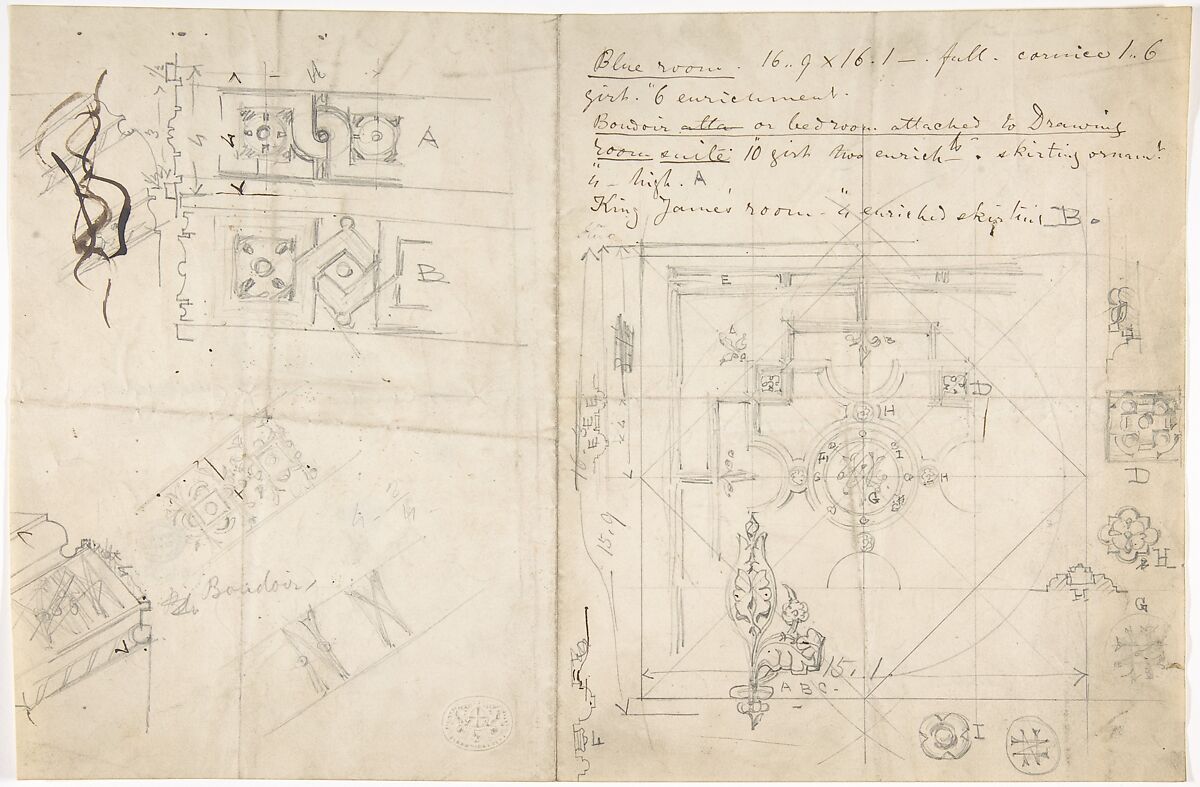 Blue room. 16.. 9 x 16. 1 — . full. cornice 1.. 6
girt. "6 enrichment.
Boudoir atta or bedroom attached to Drawing
room suite 10 girt two enrichts. skirting ornamt.
"4 — high. A
King James' room - "4 enriched skirting B.
A
B
Boudoir
E
D
I H
E H
G G H
G
15. 9
15. 1
A B C.
D
H
H
G
F
I